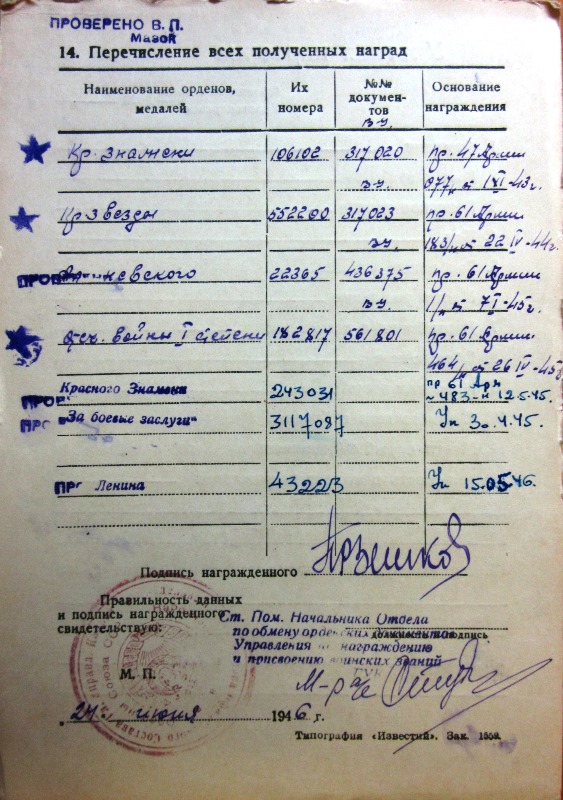 ПРОВЕРЕНО В. П.
Мазой
14. Перечисление всех полученных наград
Наименование орденов, медалей
Их номера
№№ документов
Основание награждения
в-у.
Кр. знамени 106102 317020 пр. 47 Армии
в-у. 077/н от 1 XI-43г.
Кр звезды 552200 317023 пр. 61 Армии
в-у. 183/н от 22 IV-44г.
Ал. невского 22365 436375 пр. 61 Армии
в-у. 1/н от 7 I-45г.
Отч. войны I степени 182817 561801 пр. 61 Армии
464/н от 26 IV-45г
Красного Знамени 243031 пр 61 Арм
№483-н 12.5.45.
"За боевые заслуги" 3117087 Ук 30.4.45.
Ленина 43223 Ук 15.05.46.
Подпись награжденного
Правильность данных
и подпись награжденного
свидетельствую:
Ст. Пом. Начальника Отдела
по обмену орденских документов
Управления по награждению
и присвоению воинских званий
М. П.
М-р а/с
24 июня 1946 г.
Типография «Известий». Зак. 1559.